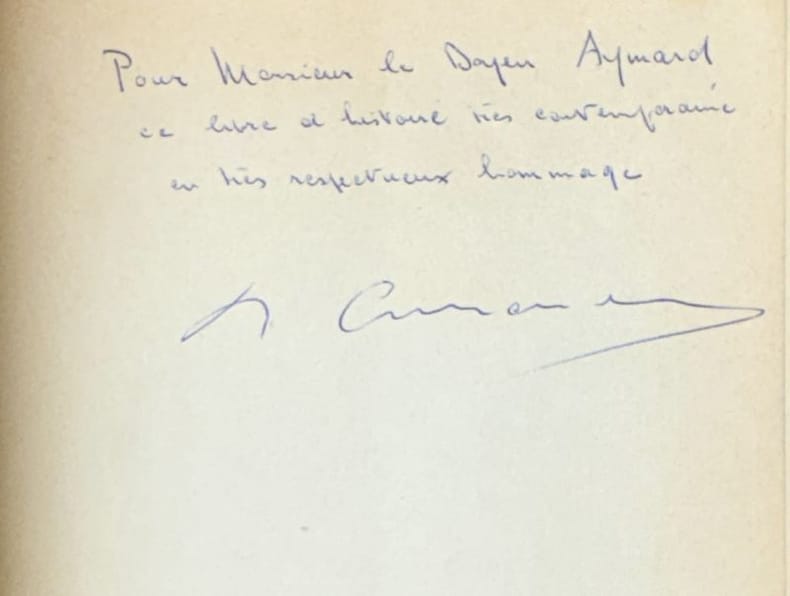 Pour Monsieur le Doyen Aymard
ce livre d'histoire très contemporaine
en très respectueux hommage